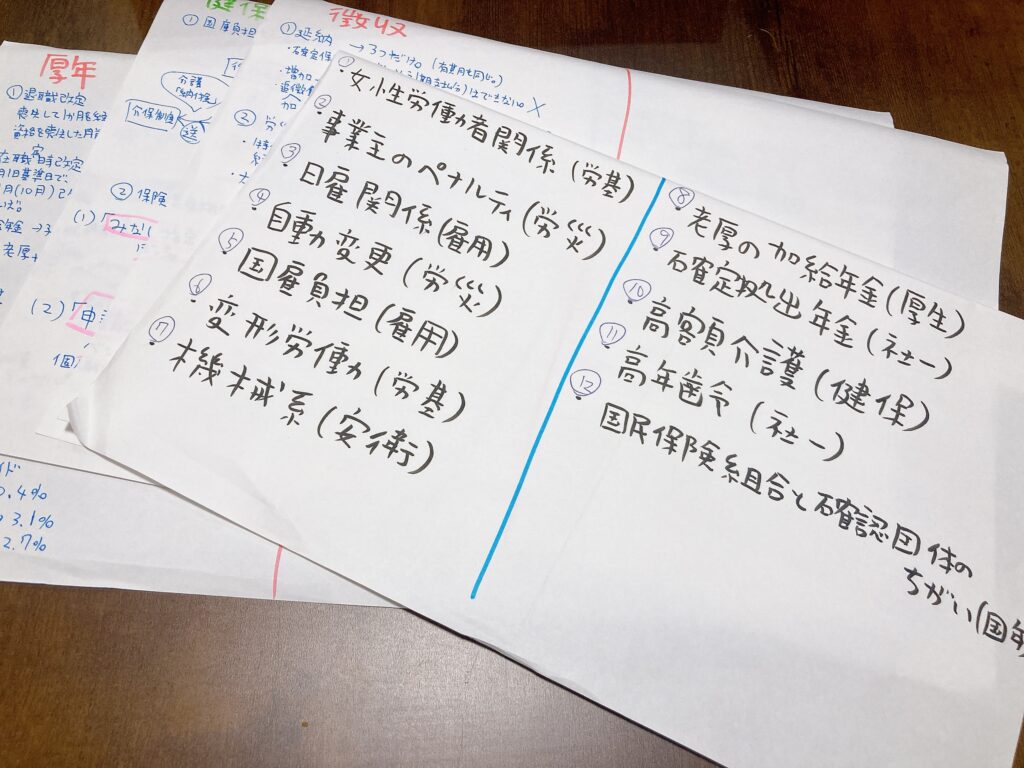 厚年
①退職改定
喪失して1か月を経
資格を喪失した月
在職
定時改定
月1日基準日で
月(10月)
老厚
(2)「申
個
0.4%
3.1%
2.7%
健保
①国庫負担
介護
「納付金」
②保険
(1)「みな
徴収
①延納 →3つだけ。(有期も同じ。)
・確定保
・増加
②労
① 女小生労働者関係(労基)
② 事業主のペナルティ(労災)
③ 日雇関係(雇用)
④ 自動変更(労災)
⑤ 国雇負担(雇用)
⑥ 変形労働(労基)
⑦ 機械系(安衛)
⑧ 老厚の加給年金(厚生)
⑨ 確定拠出年金(社一)
⑩ 高額介護(健保)
⑪ 高年歯令(社一)
⑫ 国民保険組合と確認団体の
ちがい(国年)